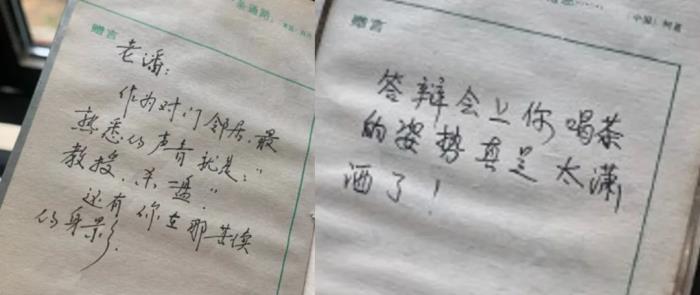 赠言
老潘：
作为对门邻居，最
熟悉的声音就是：“
教授，杀一盘.”
还有你在那苦候
的身影.
(中国) 柯蓝
赠言
答辩会上你喝茶
的姿势真是太潇
洒了！